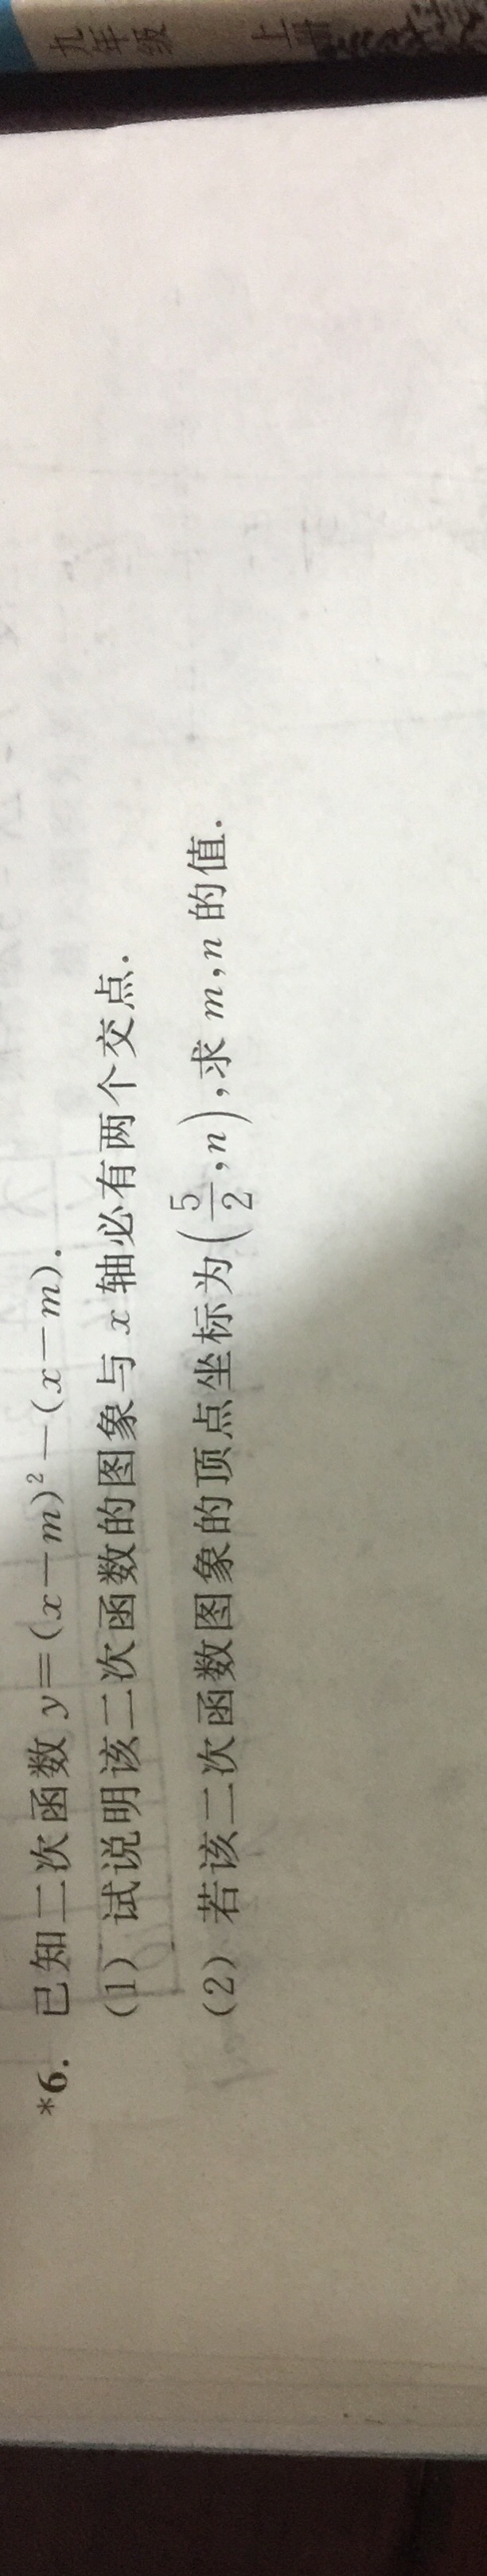 九年级 上册
*6. 已知二次函数 y=(x-m)²-(x-m).
(1) 试说明该二次函数的图象与 x 轴必有两个交点.
(2) 若该二次函数图象的顶点坐标为(5/2,n),求 m,n 的值.